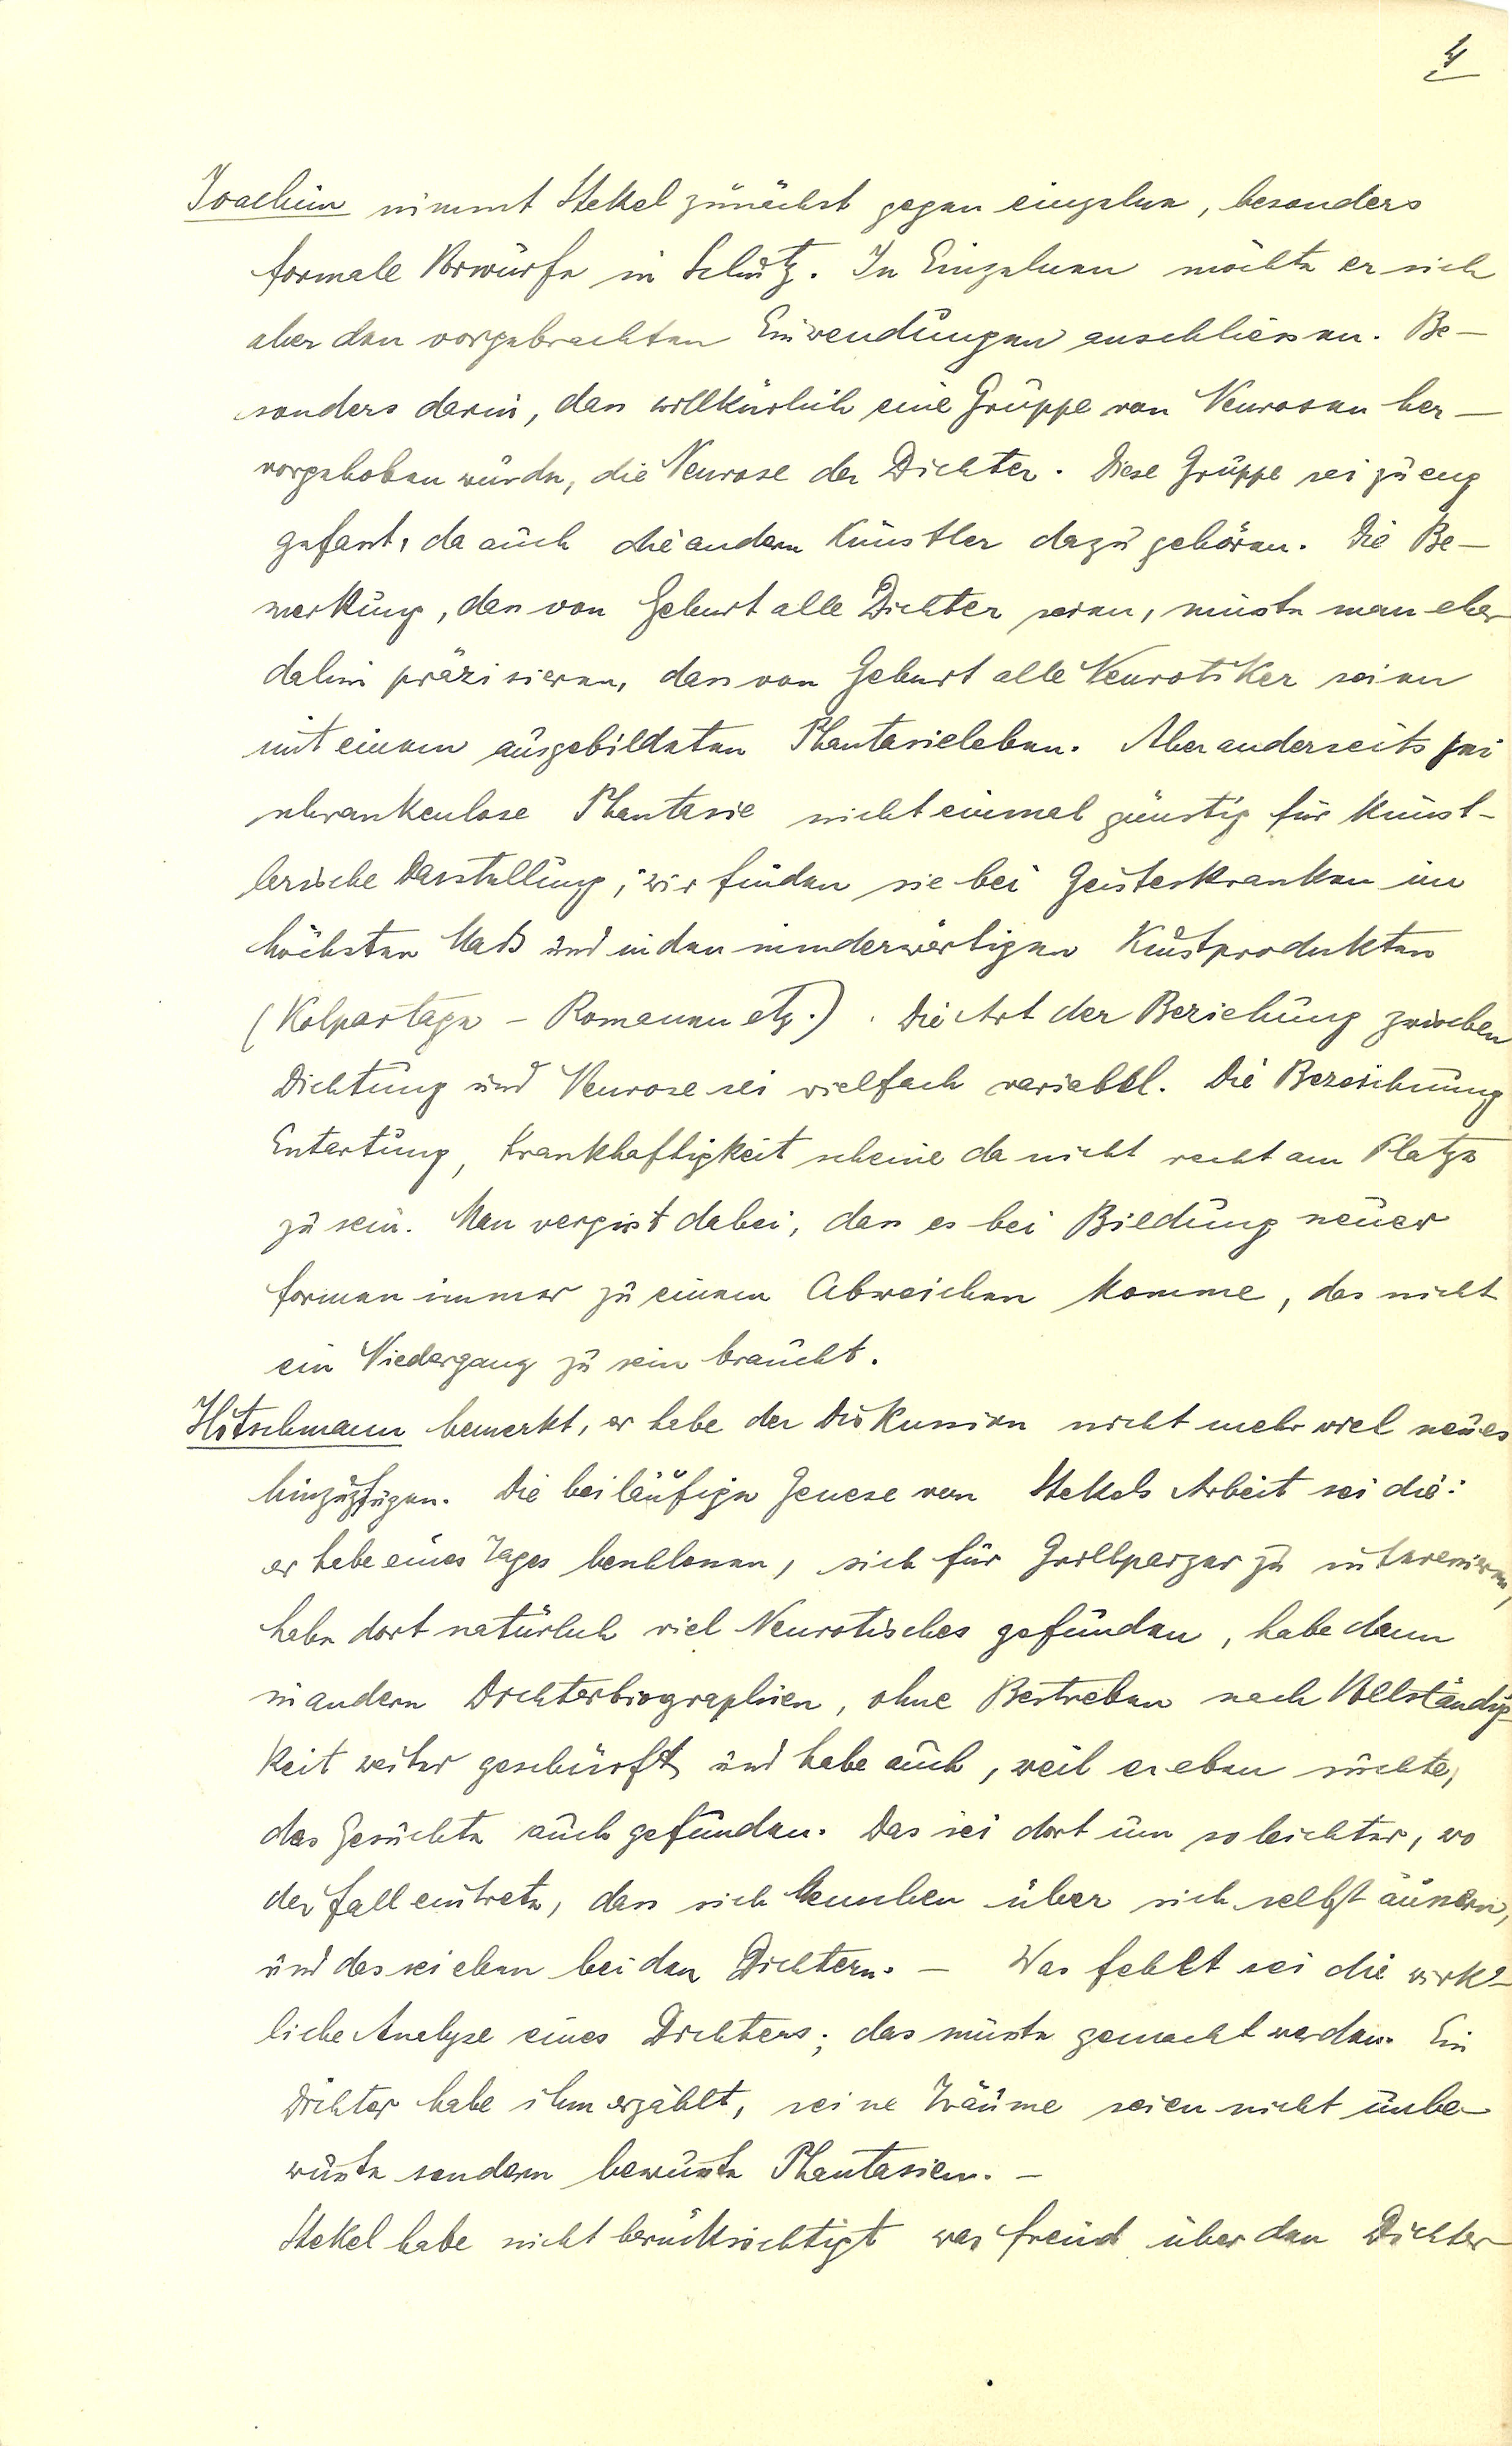 4
Joachim nimmt Stekel zunächst gegen einzelne, besonders
formale Vorwürfe in Schutz. In Einzelnen möchte er sich
aber den vorgebrachten Einwendungen anschliessen. Be-
sonders darin, dass willkürlich eine Gruppe von Neurosen her-
vorgehoben wurde, die Neurose der Dichter. Diese Gruppe sei zu eng
gefasst, da auch die andern Künstler dazu gehören. Die Be-
merkung, dass von Geburt alle Dichter seien, müsste man eher
dahin präzisieren, dass von Geburt alle Neurotiker seien
mit einem ausgebildeten Phantasieleben. Aber anderseits sei
schrankenlose Phantasie nicht einmal günstig für künst-
lerische Darstellung; wir finden sie bei Geisteskranken im
höchsten Maß und in den minderwertigen Kunstprodukten
(Kolportage - Romanen etz.). Die Art der Beziehung zwischen
Dichtung und Neurose sei vielfach variabel. Die Bezeichnung
Entartung, Krankhaftigkeit scheine da nicht recht am Platze
zu sein. Man vergisst dabei, dass es bei Bildung neuer
Formen immer zu einem Abweichen komme, das nicht
ein Niedergang zu sein braucht.
Hitschmann bemerkt, er habe der Diskussion nicht mehr viel neues
hinzuzufügen. Die beiläufige Genese von Stekels Arbeit sei die:
er habe eines Tages beschlossen, sich für Grillparzer zu interessieren,
habe dort natürlich viel Neurotisches gefunden, habe dann
in andern Dichterbiographien, ohne Bestreben nach Vollständig-
keit weiter geschürft und habe auch, weil er eben suchte,
das Gesuchte auch gefunden. Das sei dort um so leichter, wo
der Fall eintrete, dass sich Menschen über sich selbst äussern,
und das sei eben bei den Dichtern. - Was fehlt sei die wirk-
liche Analyse eines Dichters; das müsste gemacht werden. Ein
Dichter habe ihm erzählt, seine Träume seien nicht unbe-
wusste sondern bewusste Phantasien. -
Stekel habe nicht berücksichtigt was Freud über den Dichter